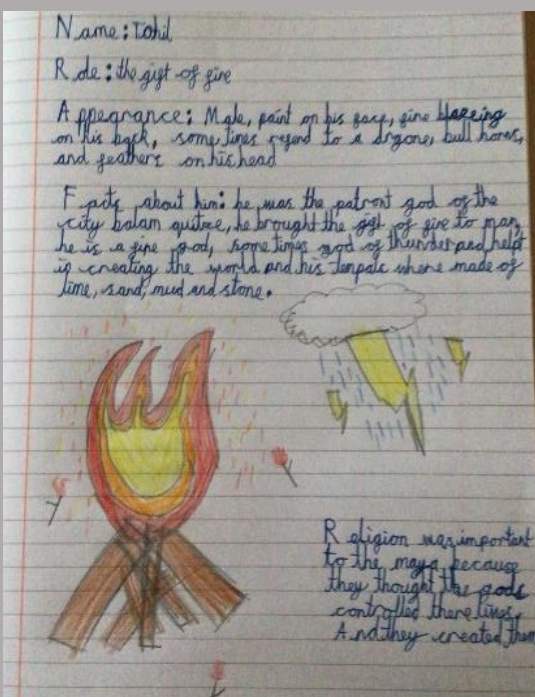 Name: Tohil
Role: the gift of fire
Appearance: Male, paint on his face, fire blazeing
on his back, some times referd to a drgone, bull hores,
and feathers on his head
Facts about him: he was the patront god of the
city balam quitze, he brought the gift of fire to man,
he is a fire god, sometimes god of thunder and helpt
in creating the world and his tenpale where made of
lime, sand, mud and stone.
Religion was important
to the maya because
they thought the gods
controlled there lives.
And they created them